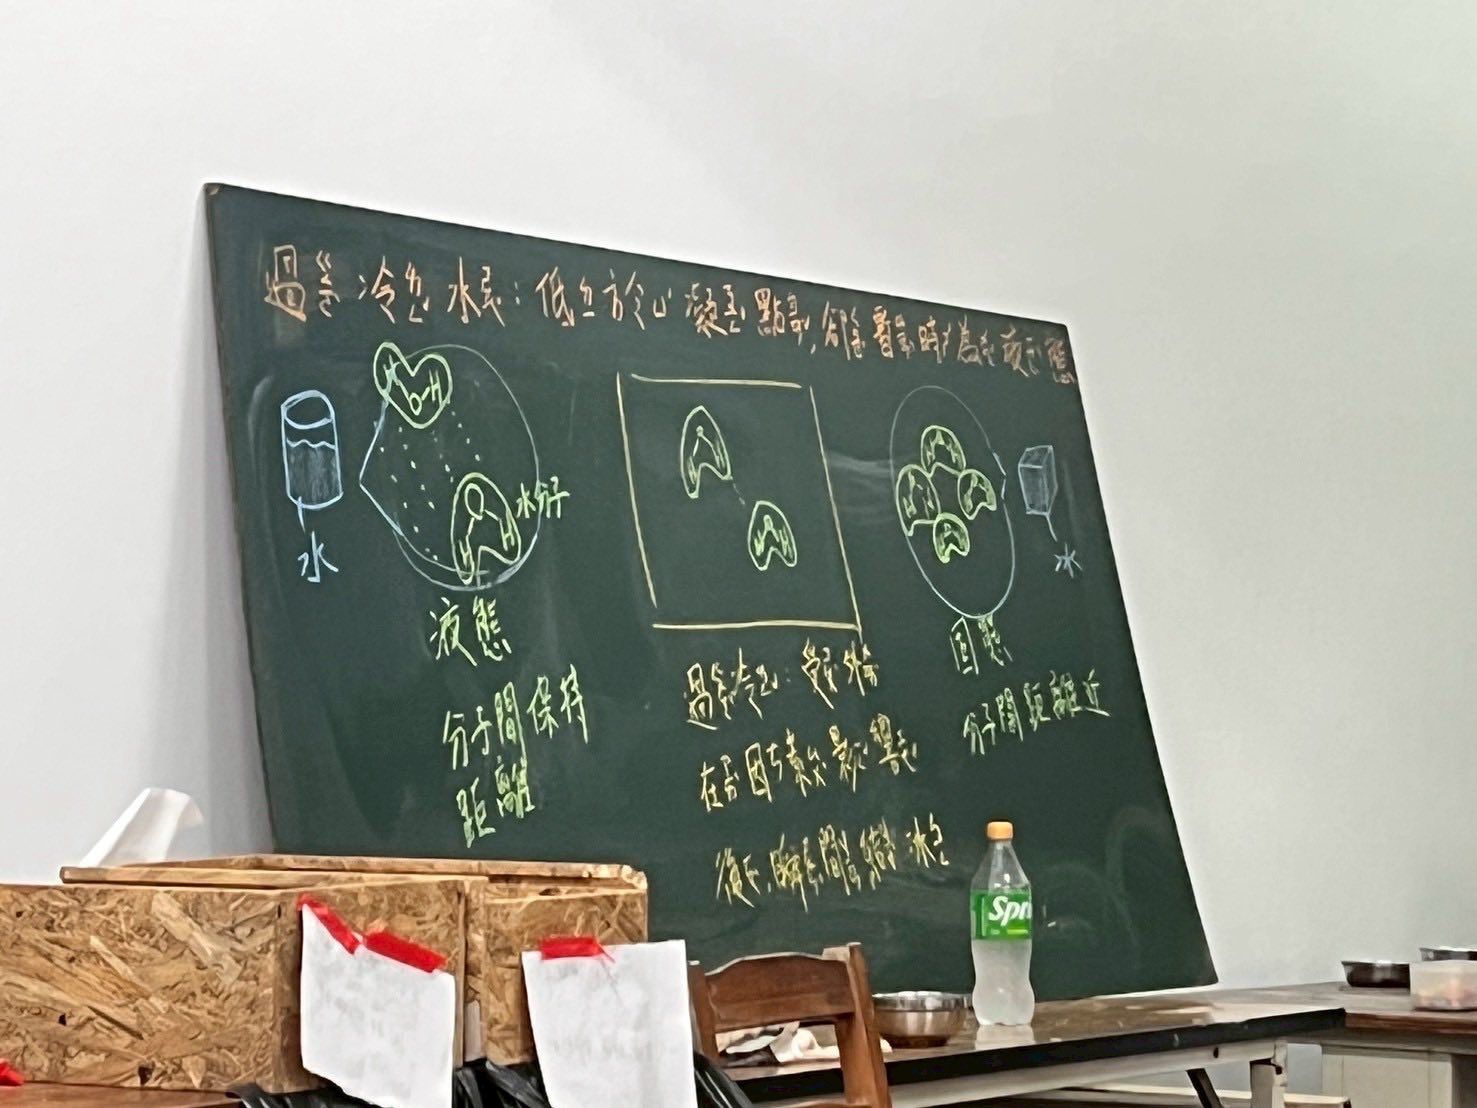 過冷水：低於凝點，卻暫時為液態
水
水分子
液態
分子間保持
距離
過冷：受外
在因素影響
後，瞬間結冰
冰
固態
分子間距離近
H
O-H
Spr